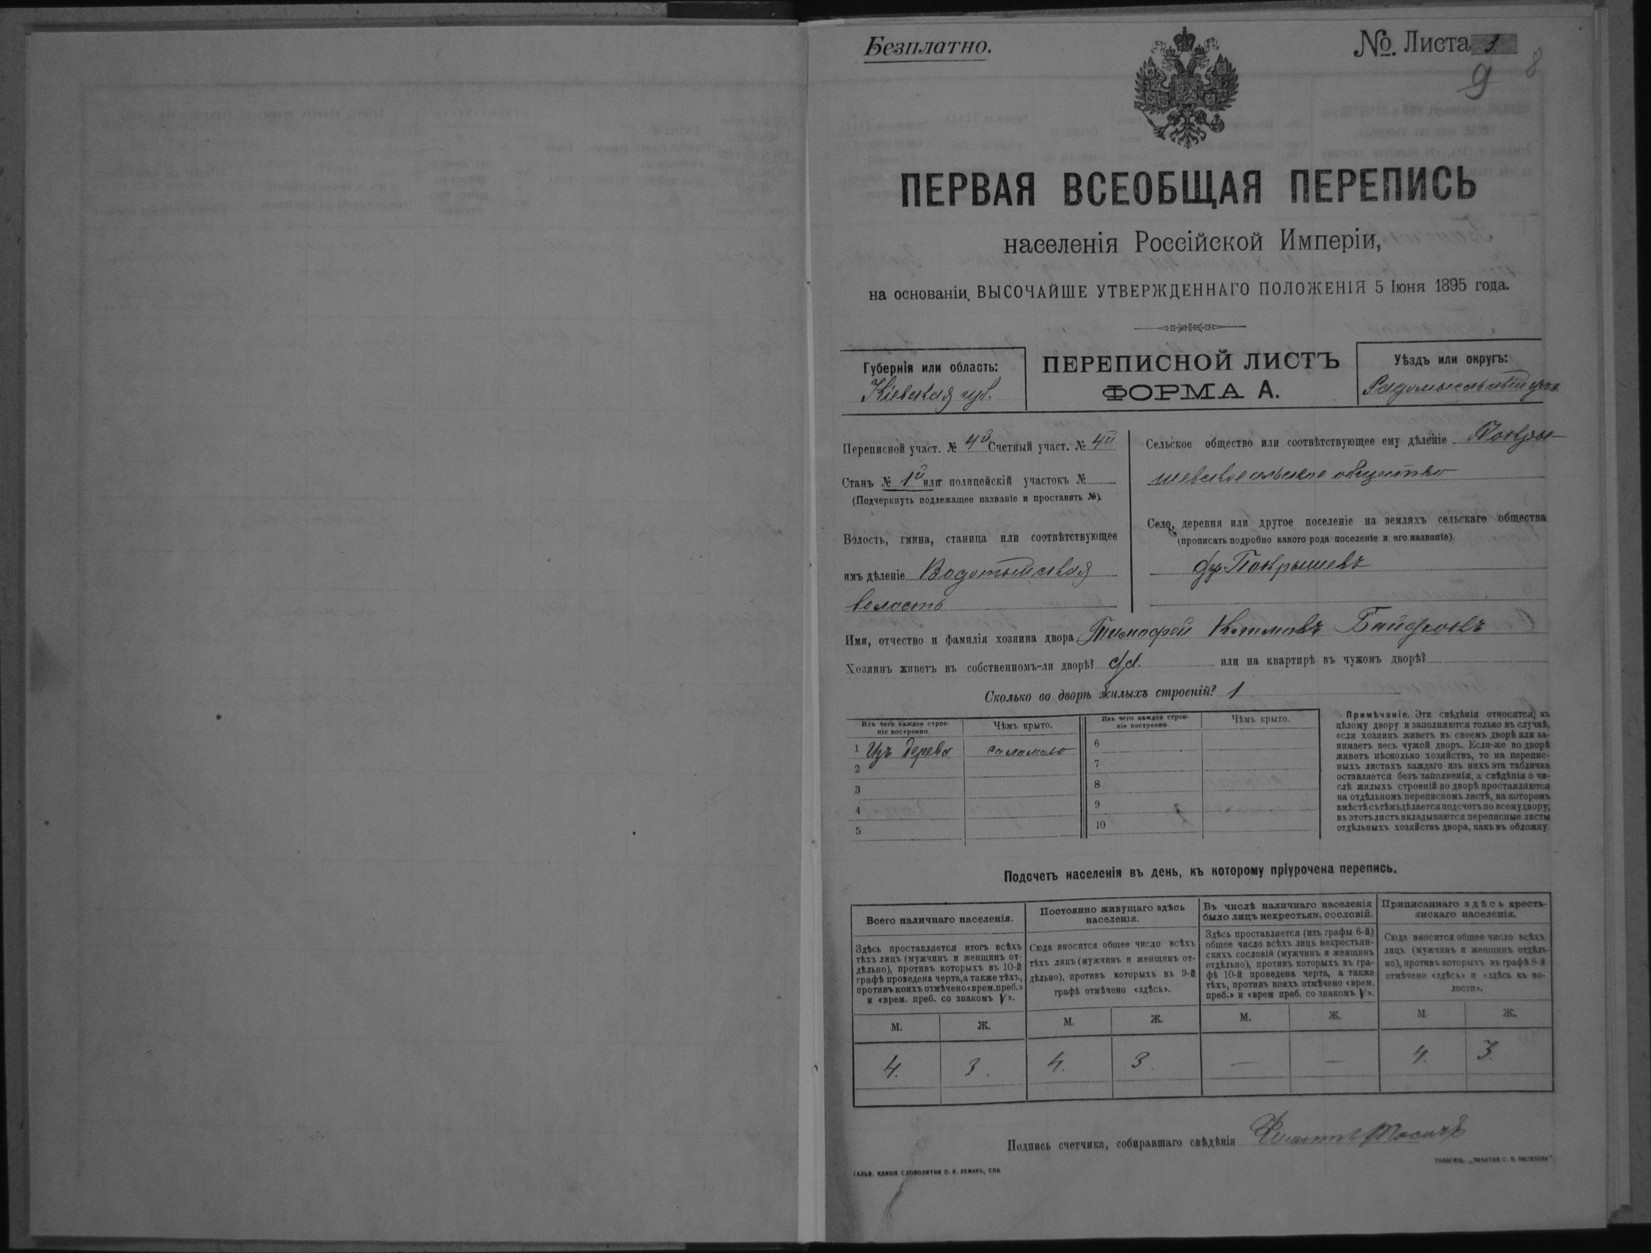 Безплатно.
№. Листа 1
9
8
ПЕРВАЯ ВСЕОБЩАЯ ПЕРЕПИСЬ
населенія Россійской Имперіи,
на основаніи ВЫСОЧАЙШЕ УТВЕРЖДЕННАГО ПОЛОЖЕНІЯ 5 Іюня 1895 года.
Губернія или область:
Кіевская губ.
ПЕРЕПИСНОЙ ЛИСТЪ
ФОРМА А.
Уѣздъ или округъ:
Радомысльскій
Переписной участ. № 4й Счетный участ. № 4й
Станъ № 1й или полицейскій участокъ №
(Подчеркнуть подлежащее названіе и проставить №).
Волость, гмина, станица или соотвѣтствующее
имъ дѣленіе Водотыйская
волость
Сельское общество или соотвѣтствующее ему дѣленіе Покры-
шевское сельское общество
Село, деревня или другое поселеніе на земляхъ сельскаго общества
(прописать подробно какого рода поселеніе и его названіе)
Покрышевъ
Имя, отчество и фамилія хозяина двора Тимофей Климовъ
Хозяинъ живетъ въ собственномъ-ли дворѣ? да или на квартирѣ въ чужомъ дворѣ?
Сколько во дворѣ жилыхъ строеній? 1
Изъ чего каждое строе-
ніе построено.
Чѣмъ крыто.
Изъ чего каждое строе-
ніе построено.
Чѣмъ крыто.
1 Изъ дерева соломою
2
3
4
5
6
7
8
9
10
Примѣчаніе. Эти свѣдѣнія относятся, къ
цѣлому двору и заполняются только въ случаѣ,
если хозяинъ живетъ въ своемъ дворѣ или за-
нимаетъ весь чужой дворъ. Если-же во дворѣ
живетъ нѣсколько хозяйствъ, то на перепис-
ныхъ листахъ каждаго изъ нихъ эта табличка
оставляется безъ заполненія, а свѣдѣнія о чи-
слѣ жилыхъ строеній во дворѣ проставляются
на отдѣльномъ переписномъ листѣ, на которомъ
вмѣстѣ съ тѣмъ дѣлается подсчетъ по всему двору;
въ этотъ листъ вкладываются переписные листы
отдѣльныхъ хозяйствъ двора, какъ въ обложку.
Подсчетъ населенія въ день, къ которому пріурочена перепись.
Всего наличнаго населенія.
Здѣсь проставляется итогъ всѣхъ
тѣхъ лицъ (мужчинъ и женщинъ от-
дѣльно), противъ которыхъ въ 10-й
графѣ проведена черта, а также тѣхъ,
противъ коихъ отмѣчено «врем. преб.»
и «врем. преб. со знакомъ V».
Постоянно живущаго здѣсь
населенія.
Сюда вносится общее число всѣхъ
тѣхъ лицъ (мужчинъ и женщинъ от-
дѣльно), противъ которыхъ въ 9-й
графѣ отмѣчено «здѣсь».
Въ числѣ наличнаго населенія
было лицъ некрестьян. сословій.
Здѣсь проставляется (изъ графы 6-й)
общее число всѣхъ лицъ некрестьян-
скихъ сословій (мужчинъ и женщинъ
отдѣльно), противъ которыхъ въ гра-
фѣ 10-й проведена черта, а также
тѣхъ, противъ коихъ отмѣчено «врем.
преб.» и «врем преб. со знакомъ V».
Приписаннаго здѣсь кресть-
янскаго населенія.
Сюда вносится общее число всѣхъ
лицъ (мужчинъ и женщинъ отдѣль-
но), противъ которыхъ въ графѣ 8-й
отмѣчено «здѣсь» и «здѣсь къ во-
лости».
М. Ж. М. Ж. М. Ж. М. Ж.
4. 3. 4. 3. — — 4. 3.
Подпись счетчика, собиравшаго свѣдѣнія
ГАЛЬВ. КЛИШЕ СЛОВОЛИТНИ О. И. ЛЕМАНЪ, СПБ